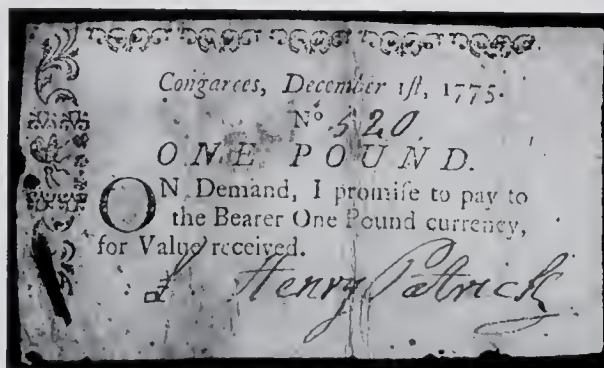 Congarees, December 1ſt, 1775.
No 520
ONE POUND.
ON Demand, I promiſe to pay to
the Bearer One Pound currency,
for Value received.
Henry Patrick